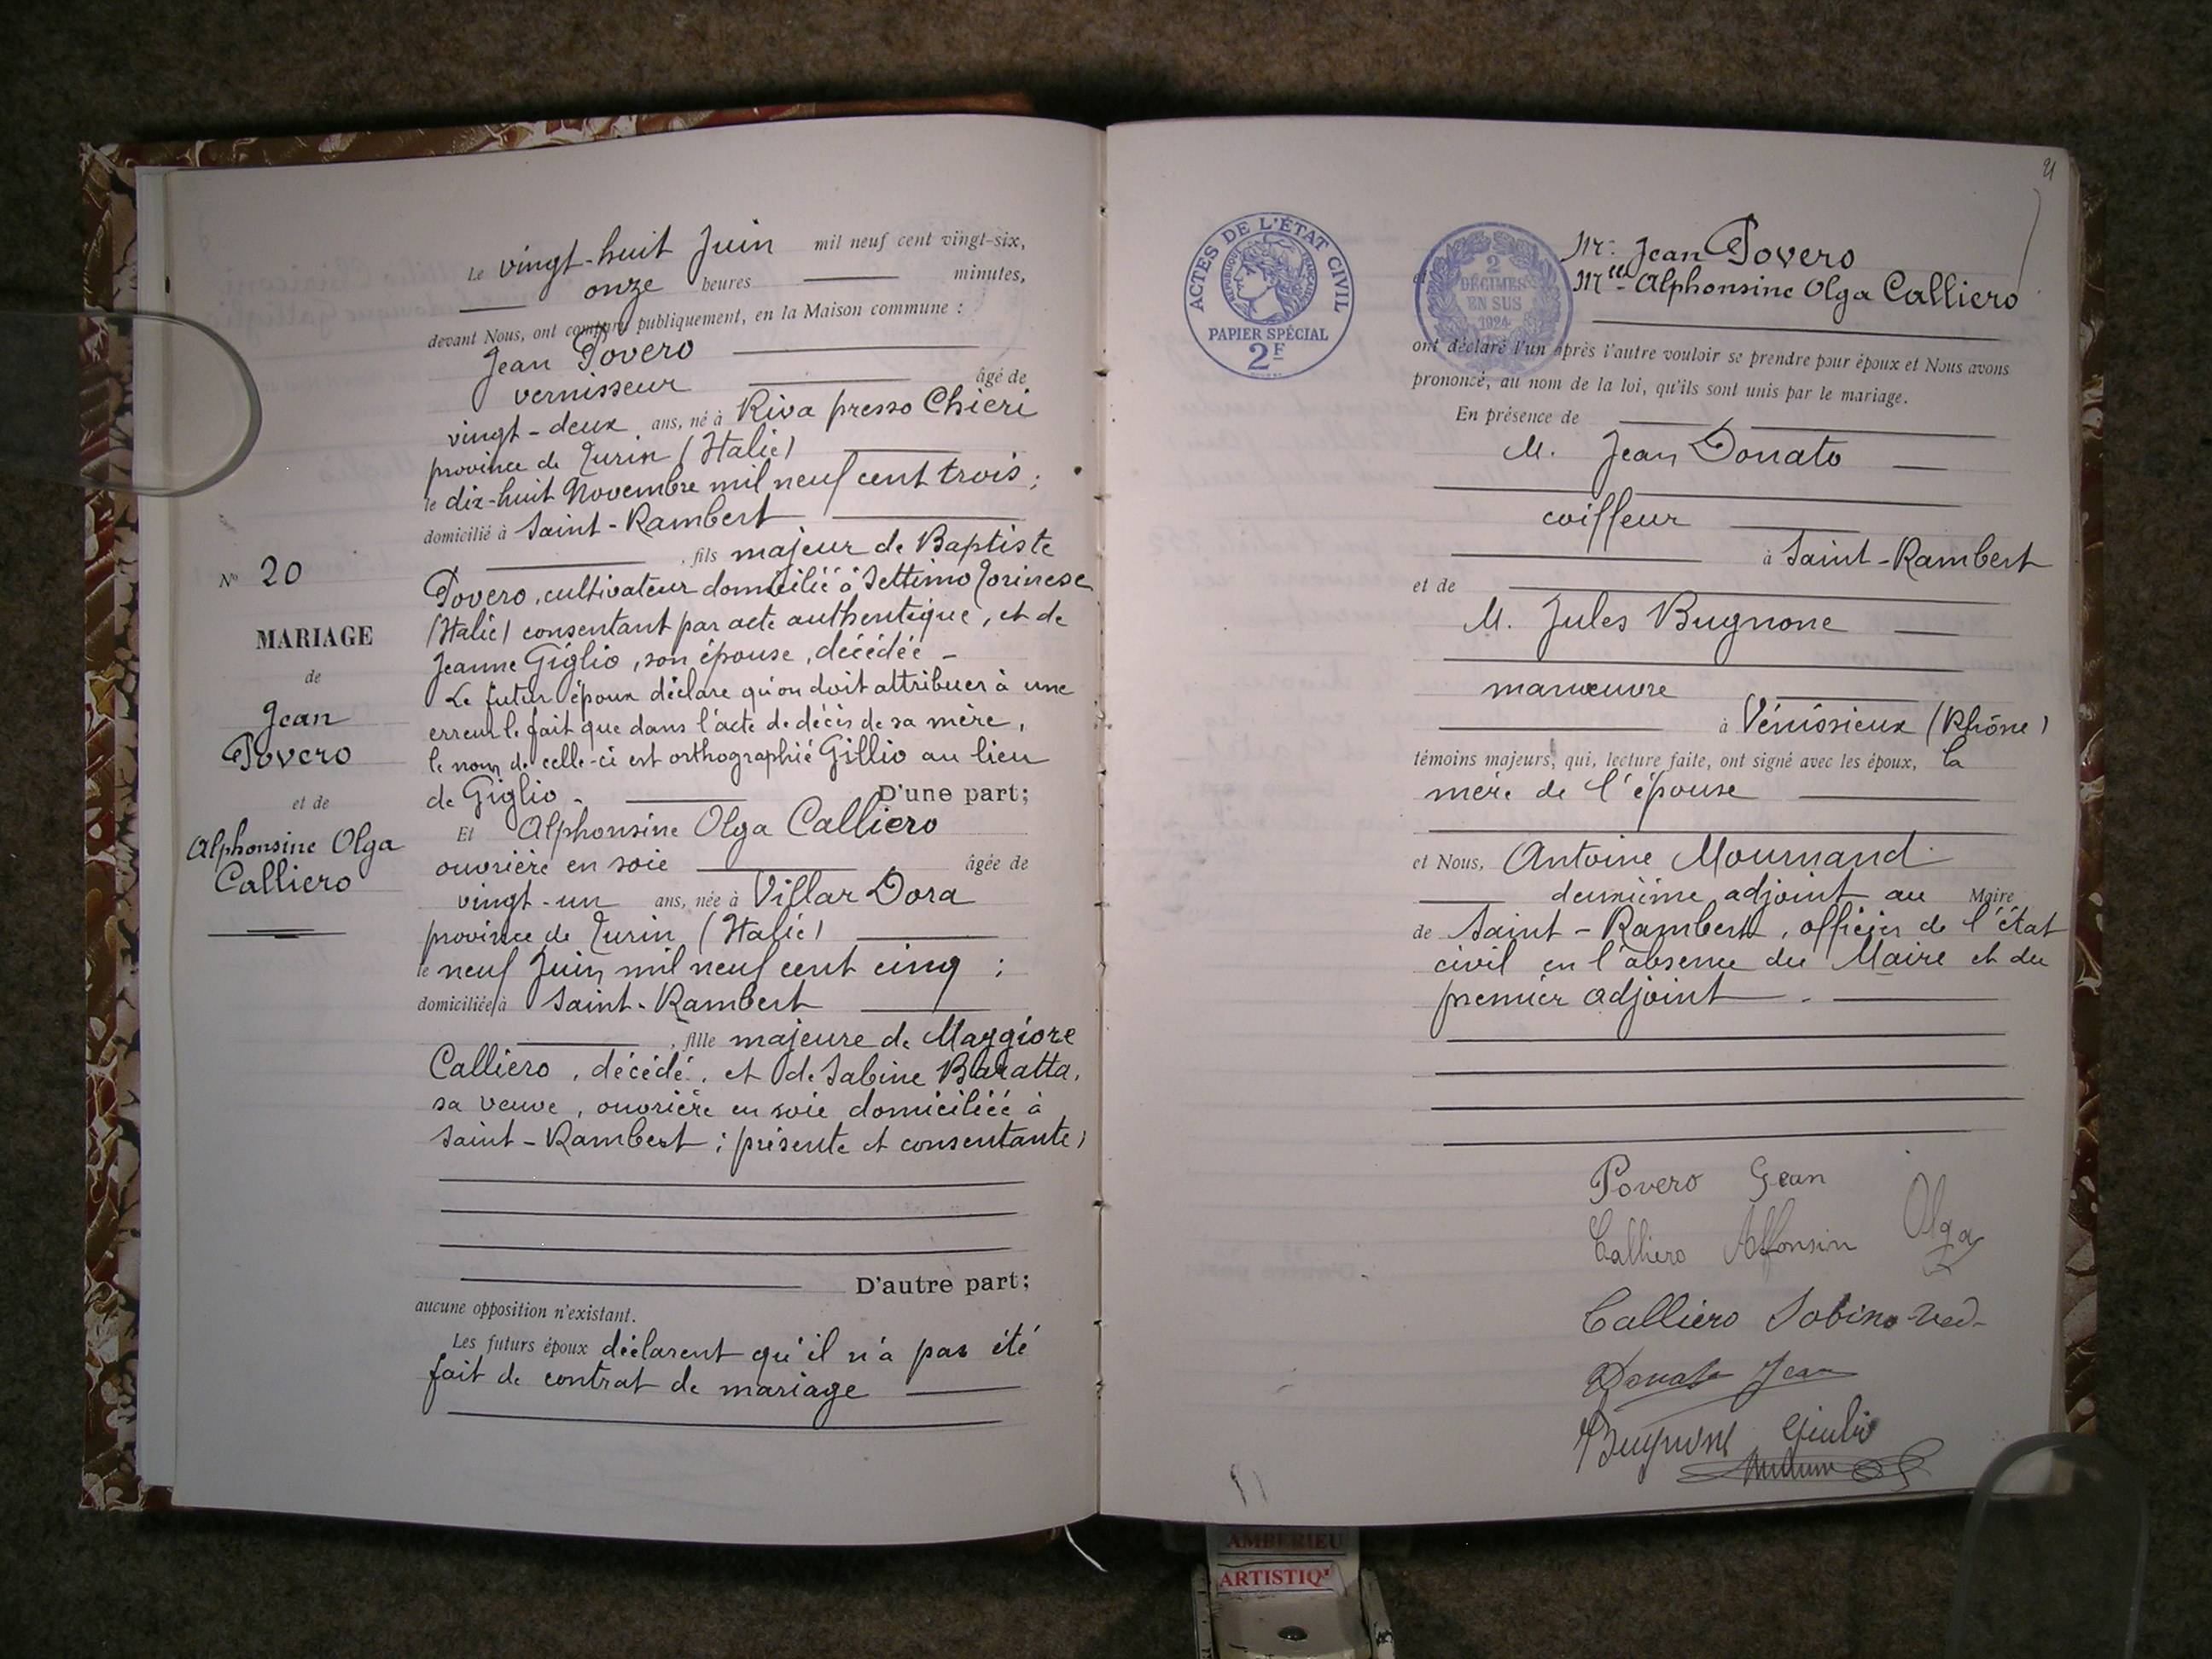 Le vingt-huit Juin mil neuf cent vingt-six,
onze heures minutes,
devant Nous, ont comparu publiquement, en la Maison commune :
Jean Povero
vernisseur âgé de
vingt-deux ans, né à Riva presso Chieri
province de Turin (Italie)
le dix-huit Novembre mil neuf cent trois ;
domicilié à Saint-Rambert
, fils majeur de Baptiste
Povero, cultivateur domicilié à Settimo Torinese
(Italie) consentant par acte authentique, et de
Jeanne Giglio, son épouse, décédée -
Le futur époux déclare qu'on doit attribuer à une
erreur le fait que dans l'acte de décès de sa mère,
le nom de celle-ci est orthographié Gillio au lieu
de Giglio - D'une part;
Et Alphonsine Olga Calliero
ouvrière en soie âgée de
vingt-un ans, née à Villar Dora
province de Turin (Italie)
le neuf Juin mil neuf cent cinq ;
domiciliée à Saint-Rambert
, fille majeure de Maggiore
Calliero, décédé, et de Sabine Baratta,
sa veuve, ouvrière en soie domiciliée à
Saint-Rambert ; présente et consentante ;
D'autre part;
aucune opposition n'existant.
Les futurs époux déclarent qu'il n'a pas été
fait de contrat de mariage
N° 20
MARIAGE
de
Jean
Povero
et de
Alphonsine Olga
Calliero
21
ACTES DE L'ÉTAT CIVIL
RÉPUBLIQUE FRANÇAISE
PAPIER SPÉCIAL
2F
2
DÉCIMES
EN SUS
1924
Mr. Jean Povero
Mlle Alphonsine Olga Calliero
ont déclaré l'un après l'autre vouloir se prendre pour époux et Nous avons
prononcé, au nom de la loi, qu'ils sont unis par le mariage.
En présence de
M. Jean Donato
coiffeur
à Saint-Rambert
et de
M. Jules Bugnone
manœuvre
à Vénissieux (Rhône)
témoins majeurs, qui, lecture faite, ont signé avec les époux, la
mère de l'épouse
et Nous, Antoine Mournand
deuxième adjoint au Maire
de Saint-Rambert, officier de l'état
civil en l'absence du Maire et du
premier adjoint.
Povero Gean
Calliero Alfonsin Olga
Calliero Sabina ved-
Donato Jean
Bugnone Giulio
AMBERIEU
ARTISTIQ